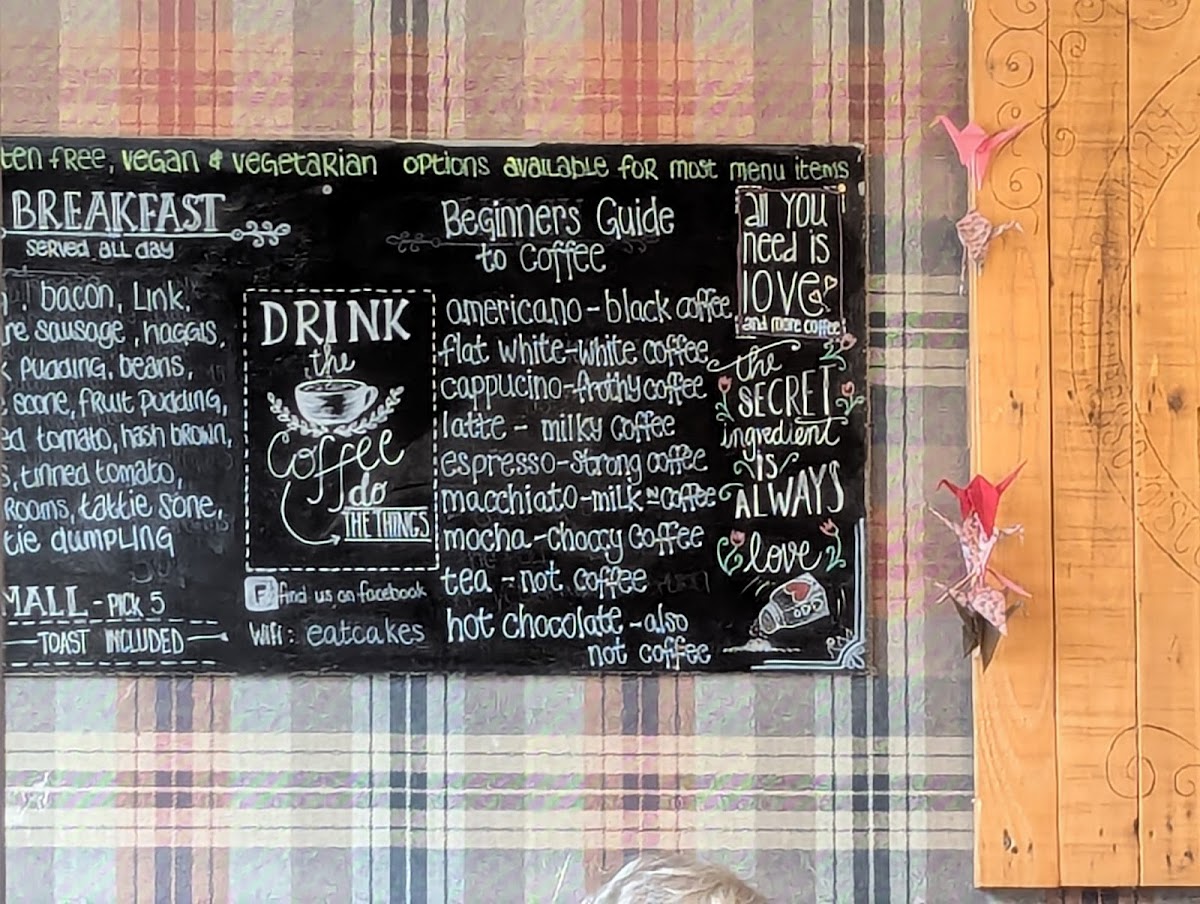 ten free, vegan & vegetarian options available for most menu items
BREAKFAST
served all day
bacon, Link,
re sausage, haggis,
pudding, beans,
scone, fruit pudding,
ed tomato, hash brown,
s, tinned tomato,
rooms, tattie sone,
tie dumpling
MALL - PICK 5
TOAST INCLUDED
DRINK
the
Coffee
do
THE THINGS
F find us on facebook
Wifi: eatcakes
Beginners Guide
to Coffee
americano - black coffee
flat white - white coffee
cappucino - frothy coffee
latte - milky coffee
espresso - strong coffee
macchiato - milk n coffee
mocha - choccy coffee
tea - not coffee
hot chocolate - also
not coffee
all you
need is
love
and more coffee
the
SECRET
ingredient
is
ALWAYS
love